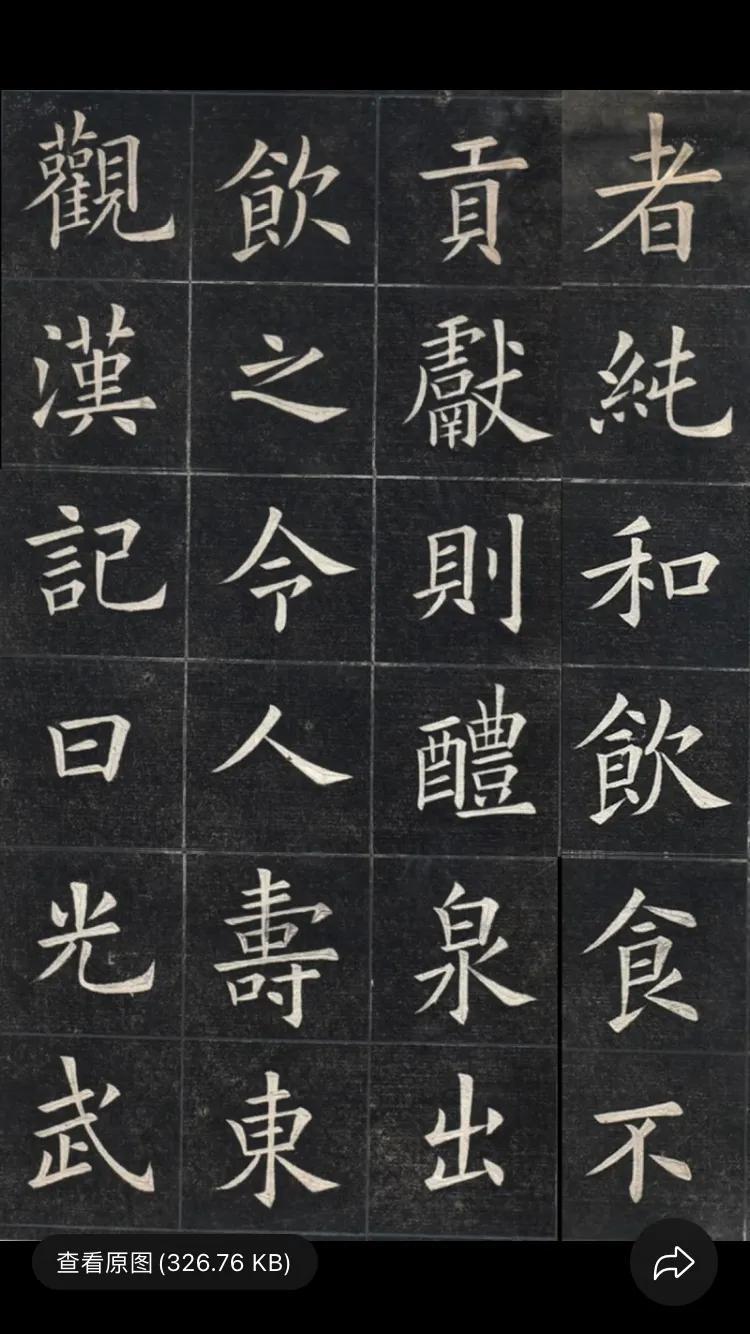 者純和飲食不
貢獻則醴泉出
飲之令人壽東
觀漢記曰光武
查看原图(326.76 KB)